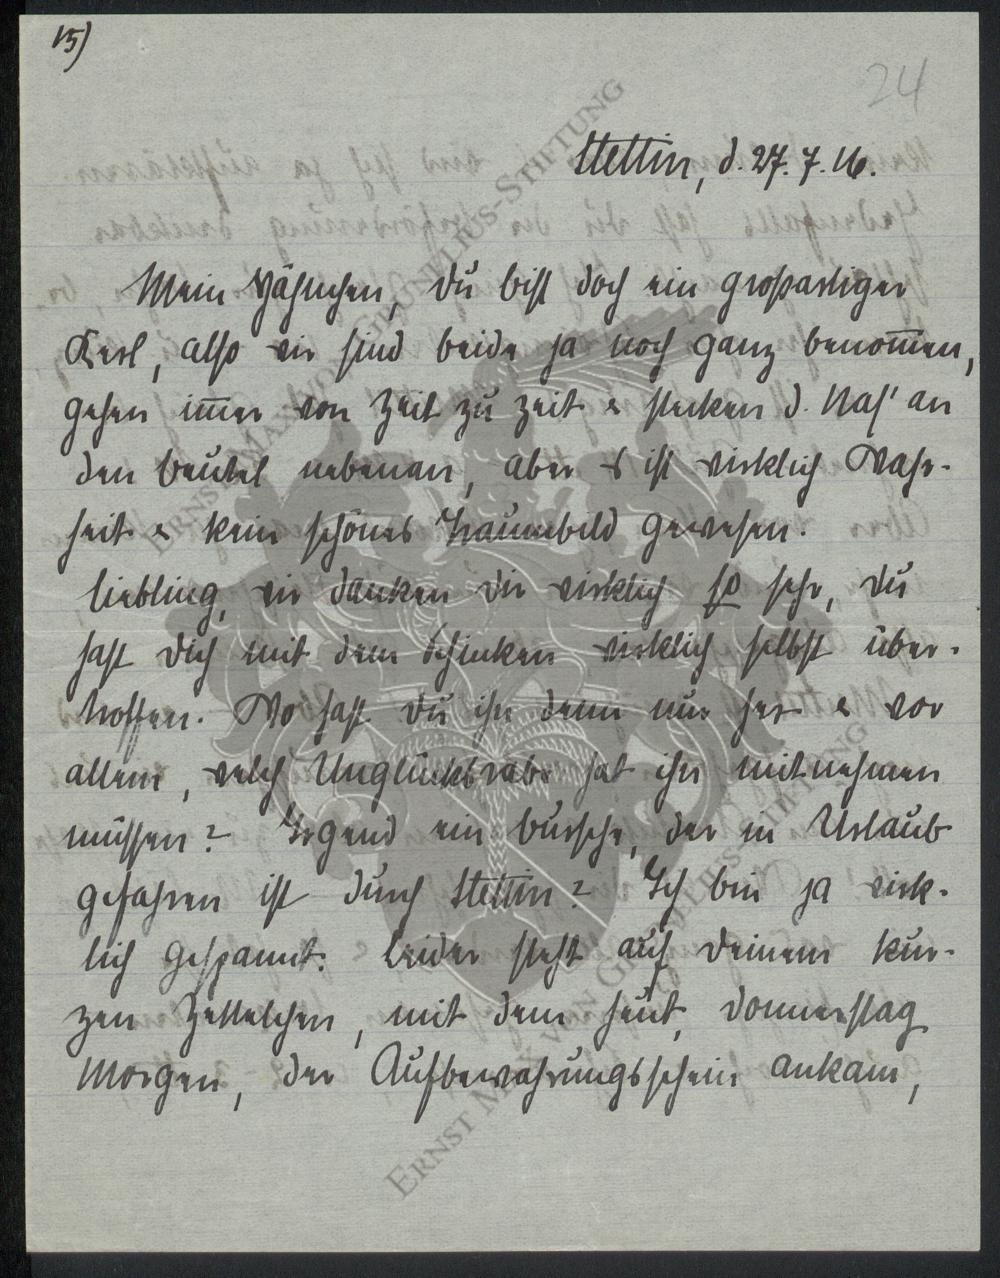 15)
24
Stettin, d. 27. 7. 16.
Mein Hähnchen, Du bist doch ein großartiger
Kerl, also wir sind beide ja noch ganz benom̅en,
gehen im̅er von Zeit zu Zeit & stecken d. Nas' an
den Beutel nebenan, aber es ist wirklich Wahr-
heit & kein schönes Traumbild gewesen.
Liebling, wir danken Dir wirklich so sehr, Du
hast Dich mit dem Schinken wirklich selbst über-
troffen. Wo hast Du ihn denn nur her & vor
allem, welch Unglücksrabe hat ihn mitnehmen
müssen? Irgend ein Bursche, der in Urlaub
gefahren ist durch Stettin? Ich bin ja wirk-
lich gespannt. Leider steht auf Deinem kur-
zen Zettelchen, mit dem heut, Donnerstag
Morgen, der Aufbewahrungsschein ankam,
ERNST MAX VON GRUNELIUS-STIFTUNG
ERNST MAX VON GRUNELIUS-STIFTUNG